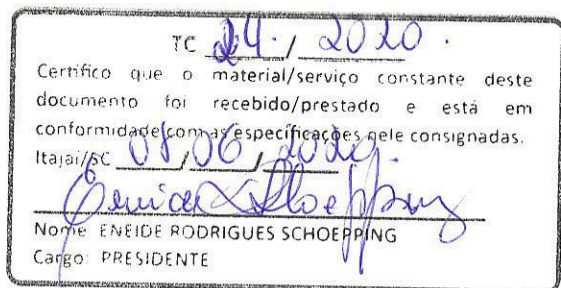 TC 24 / 2020.
Certifico que o material/serviço constante deste
documento foi recebido/prestado e está em
conformidade com as especificações nele consignadas.
Itajaí/SC 08 / 06 / 2020.
Nome ENEIDE RODRIGUES SCHOEPPING
Cargo: PRESIDENTE